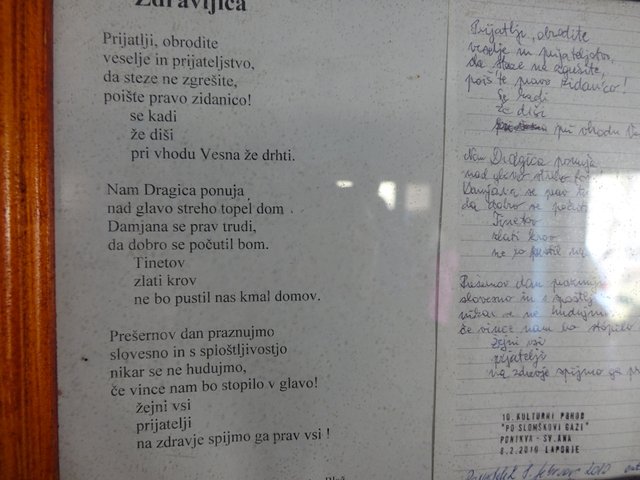 Zdravljica
Prijatlji, obrodite
veselje in prijateljstvo,
da steze ne zgrešite,
poište pravo zidanico!
se kadi
že diši
pri vhodu Vesna že drhti.
Nam Dragica ponuja
nad glavo streho topel dom
Damjana se prav trudi,
da dobro se počutil bom.
Tinetov
zlati krov
ne bo pustil nas kmal domov.
Prešernov dan praznujmo
slovesno in s spioštljivostjo
nikar se ne hudujmo,
če vince nam bo stopilo v glavo!
žejni vsi
prijatelji
na zdravje spijmo ga prav vsi !
Prijatlji, obrodite
veselje in prijateljstvo,
da steze ne zgrešite,
poiš'te pravo zidanico!
Se kadi
že diši
pri vhodu
Nam Dragica ponuja
nad glavo streho
Damjana se prav
da dobro se
Tinetov
zlati krov
ne bo pustil
Prešernov dan
slovesno in s
nikar se ne hudujmo
če vince nam bo stopilo
žejni vsi
prijatelji
na zdravje spijmo ga
10. KULTURNI POHOD
"PO SLOMŠKOVI GAZI"
PONIKVA - SV. ANA
8.2.2010 LAPORJE
8. februar 2010